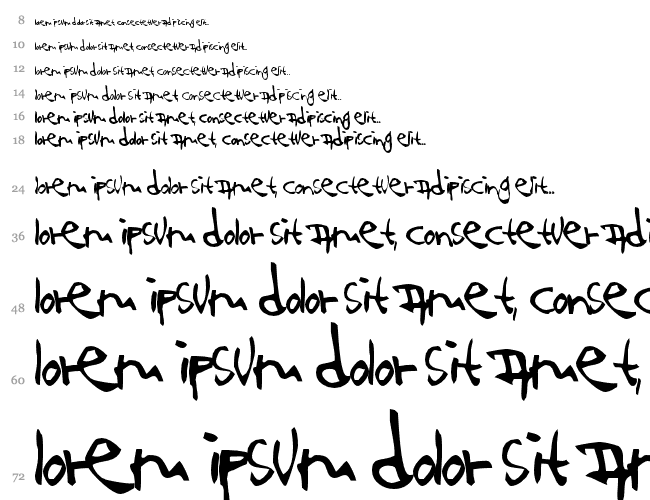 8 lorem ipsum dolor sit amet, consectetuer adipiscing elit..
10 lorem ipsum dolor sit amet, consectetuer adipiscing elit..
12 lorem ipsum dolor sit amet, consectetuer adipiscing elit..
14 lorem ipsum dolor sit amet, consectetuer adipiscing elit..
16 lorem ipsum dolor sit amet, consectetuer adipiscing elit..
18 lorem ipsum dolor sit amet, consectetuer adipiscing elit..
24 lorem ipsum dolor sit amet, consectetuer adipiscing elit..
36 lorem ipsum dolor sit amet, consectetuer adi
48 lorem ipsum dolor sit amet, consec
60 lorem ipsum dolor sit amet,
72 lorem ipsum dolor sit am